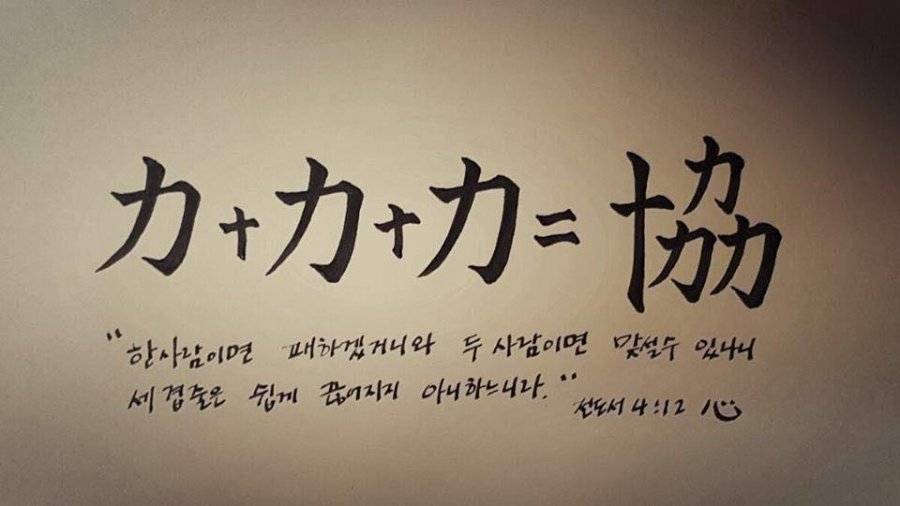 力+力+力=協
"한사람이면 패하겠거니와 두 사람이면 맞설수 있나니
세겹줄은 쉽게 끊어지지 아니하느니라."
전도서 4:12 心